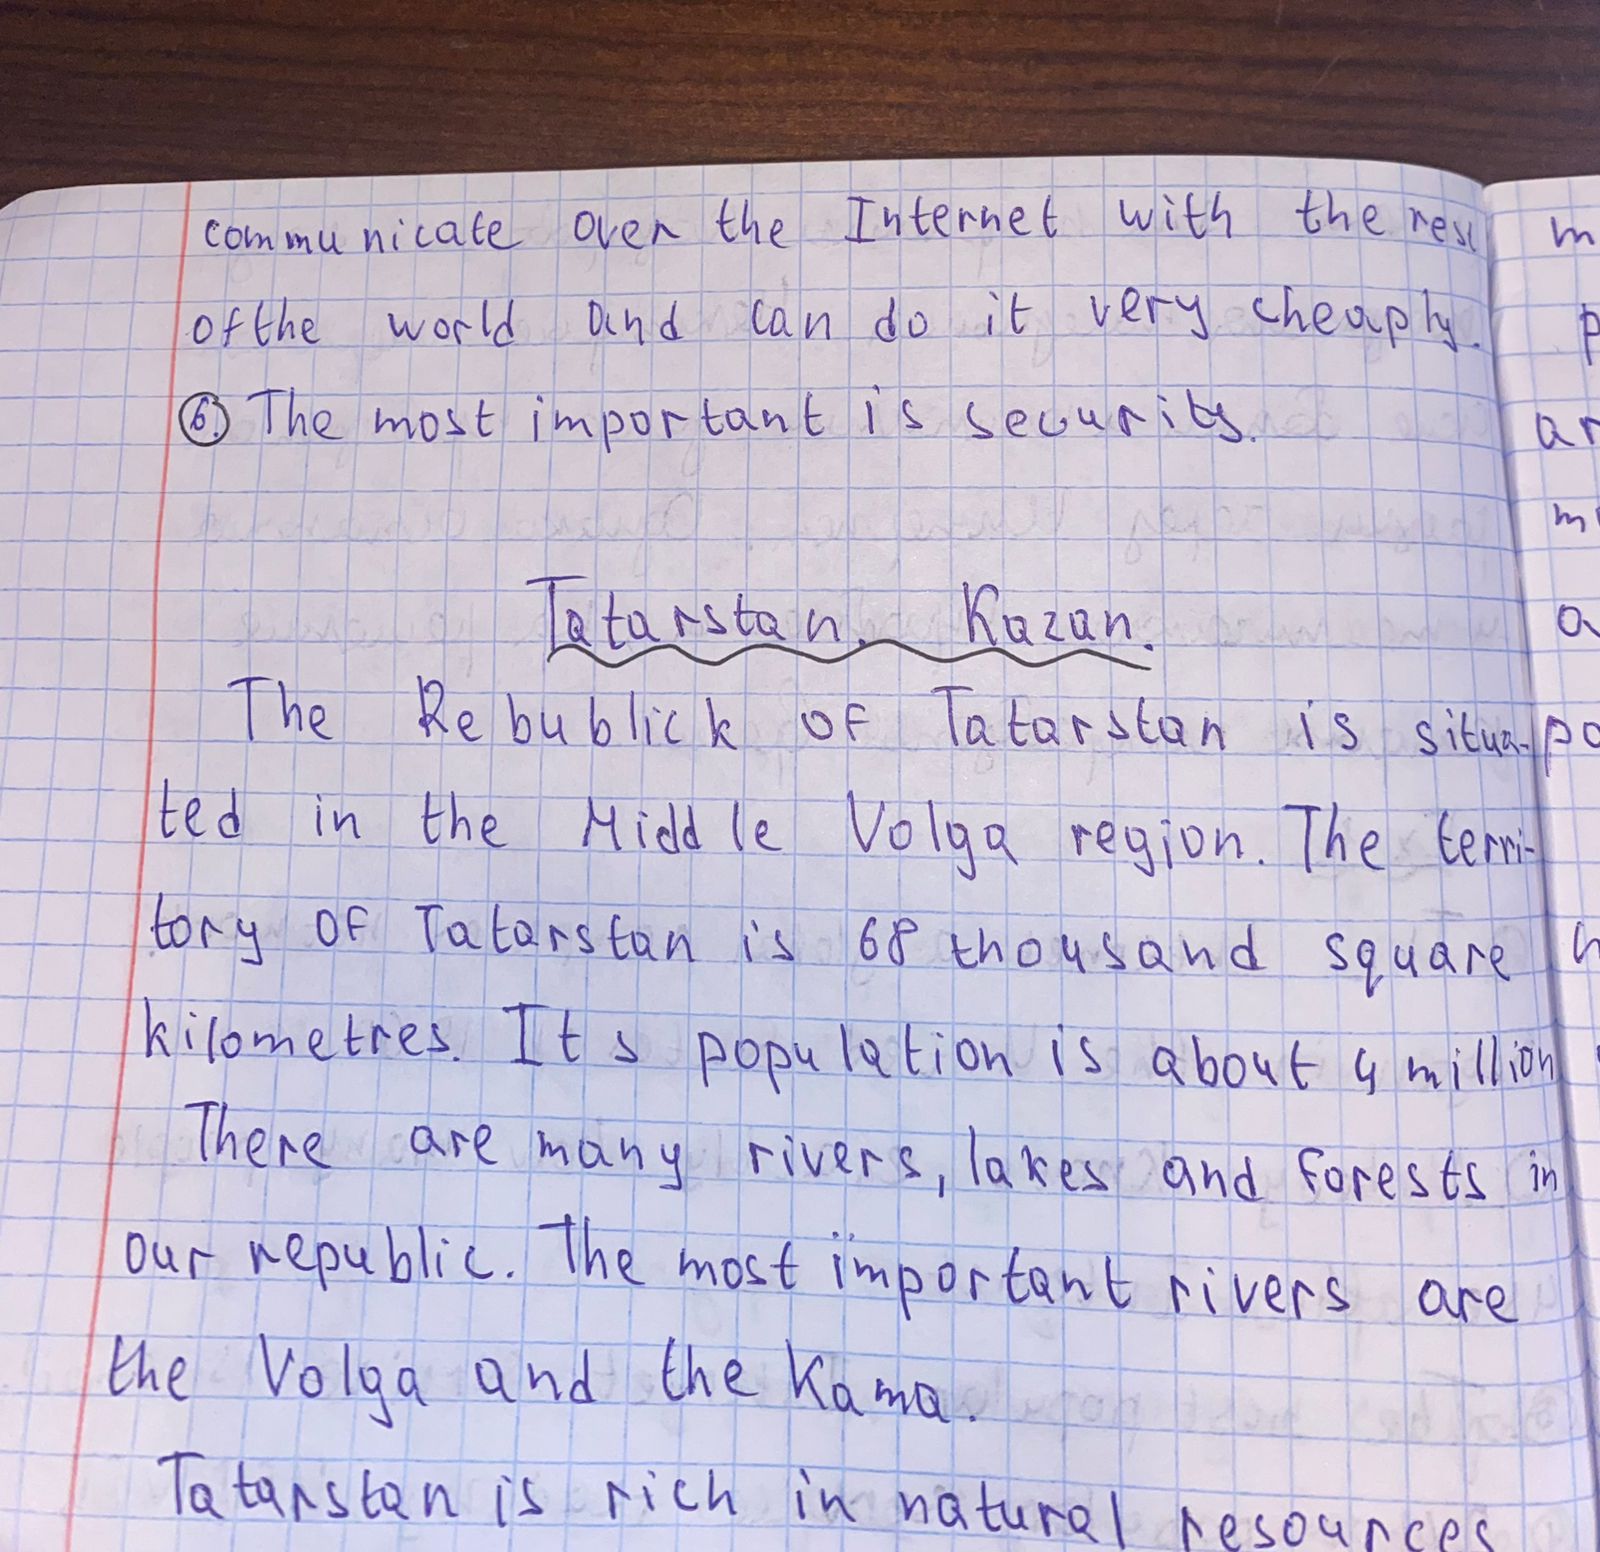 communicate over the Internet with the rest
of the world and can do it very cheaply.
6. The most important is security.
Tatarstan. Kazan.
The Rebublick of Tatarstan is situa-
ted in the Middle Volga region. The terri-
tory of Tatarstan is 68 thousand square
kilometres. Its population is about 4 million
There are many rivers, lakes and forests in
our republic. The most important rivers are
the Volga and the Kama.
Tatarstan is rich in natural resources
m
p
ar
a
po